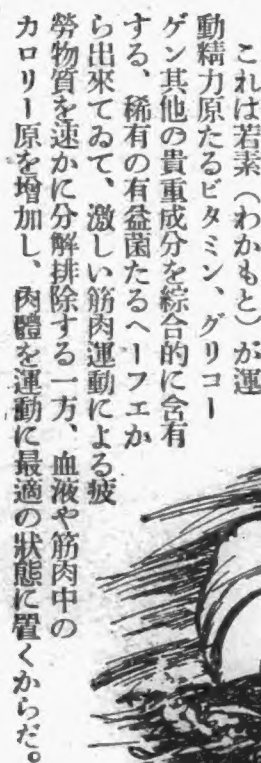 これは若素（わかもと）が運
動精力原たるビタミン、グリコー
ゲン其他の貴重成分を綜合的に含有
する、稀有の有益菌たるヘーフェか
ら出來てゐて、激しい筋肉運動による疲
勞物質を速かに分解排除する一方、血液や筋肉中の
カロリー原を增加し、肉體を運動に最適の狀態に置くからだ。